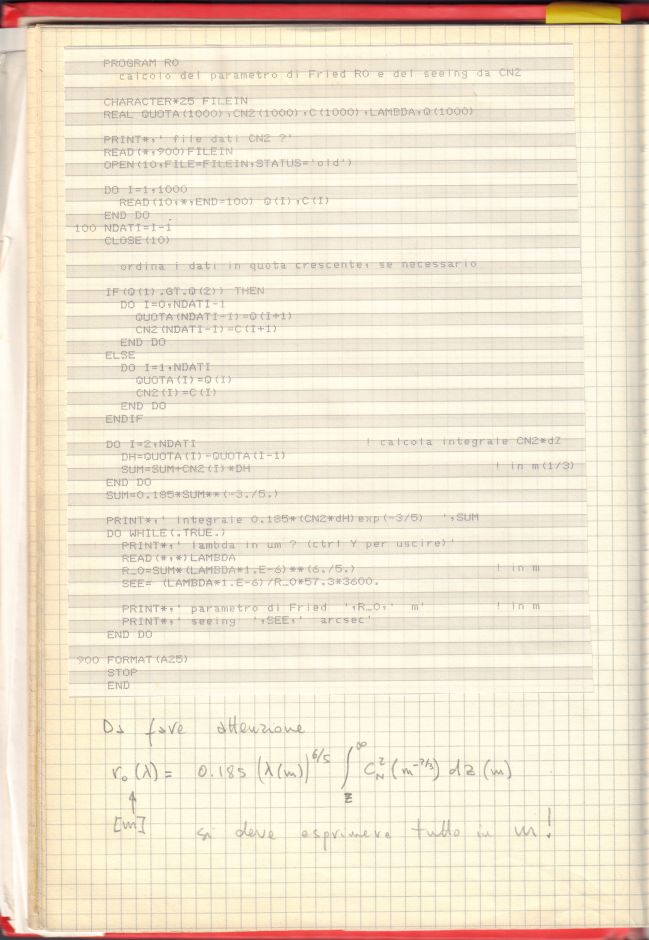 PROGRAM RO
calcolo del parametro di Fried RO e del seeing da CN2
CHARACTER*25 FILEIN
REAL QUOTA(1000),CN2(1000),C(1000),LAMBDA,Q(1000)
PRINT*,' file dati CN2 ?'
READ(*,900)FILEIN
OPEN(10,FILE=FILEIN,STATUS='old')
DO I=1,1000
READ(10,*,END=100) Q(I),C(I)
END DO
100 NDATI=I-1
CLOSE(10)
ordina i dati in quota crescente, se necessario
IF(Q(1).GT.Q(2)) THEN
DO I=0,NDATI-1
QUOTA(NDATI-I)=Q(I+1)
CN2(NDATI-I)=C(I+1)
END DO
ELSE
DO I=1,NDATI
QUOTA(I)=Q(I)
CN2(I)=C(I)
END DO
ENDIF
DO I=2,NDATI ! calcola integrale CN2*dZ
DH=QUOTA(I)-QUOTA(I-1)
SUM=SUM+CN2(I)*DH ! in m(1/3)
END DO
SUM=0.185*SUM**(-3./5.)
PRINT*,' integrale 0.185*(CN2*dH)exp(-3/5) ',SUM
DO WHILE(.TRUE.)
PRINT*,' lambda in um ? (ctrl Y per uscire)'
READ(*,*)LAMBDA
R_0=SUM*(LAMBDA*1.E-6)**(6./5.) ! in m
SEE= (LAMBDA*1.E-6)/R_0*57.3*3600.
PRINT*,' parametro di Fried ',R_0,' m' ! in m
PRINT*,' seeing ',SEE,' arcsec'
END DO
900 FORMAT(A25)
STOP
END
Da fare attenzione
r₀(λ) = 0.185 (λ(m))^6/5 ∫_z^∞ C_N^2 (m^-2/3) dz (m)
[m] si deve esprimere tutto in m!